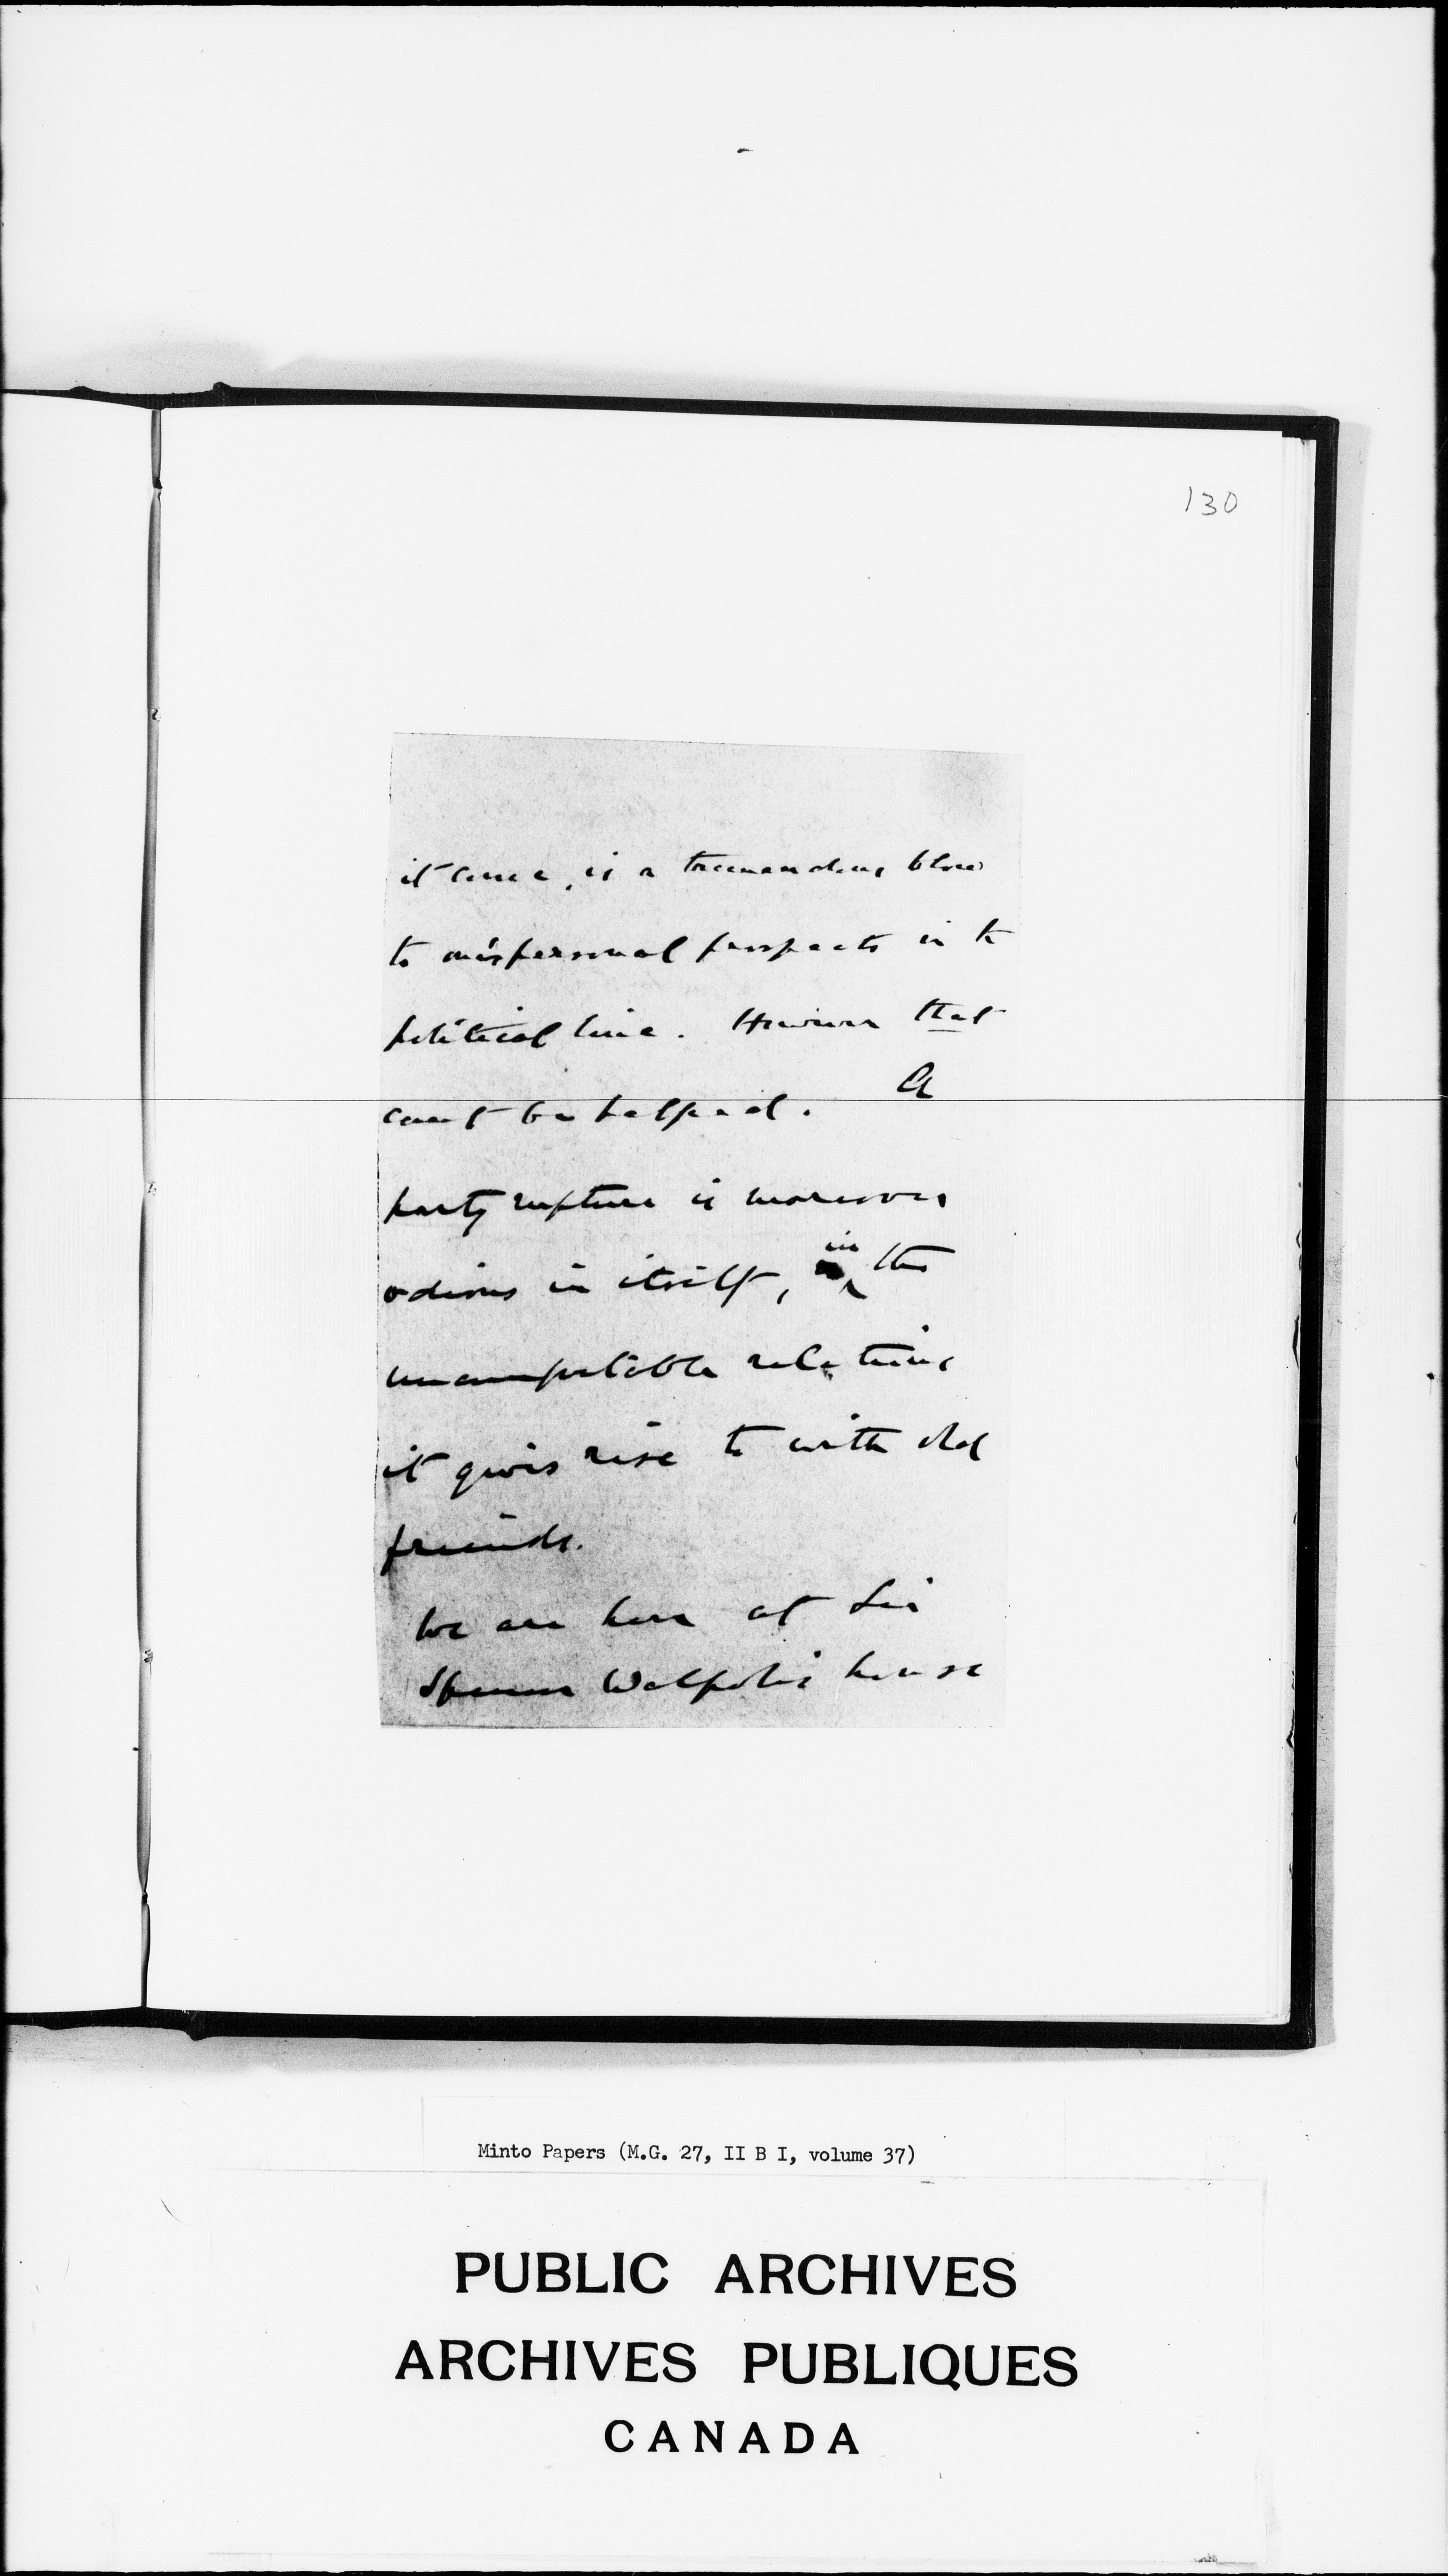 130
it came, is a tremendous blow
to one's personal prospects in the
political line. However that
can't be helped. A
party rupture is moreover
odious in itself, in the
uncomfortable relations
it gives rise to with old
friends.
We are here at Sir
Spencer Walpole's house
Minto Papers (M.G. 27, II B I, volume 37)
PUBLIC ARCHIVES
ARCHIVES PUBLIQUES
CANADA